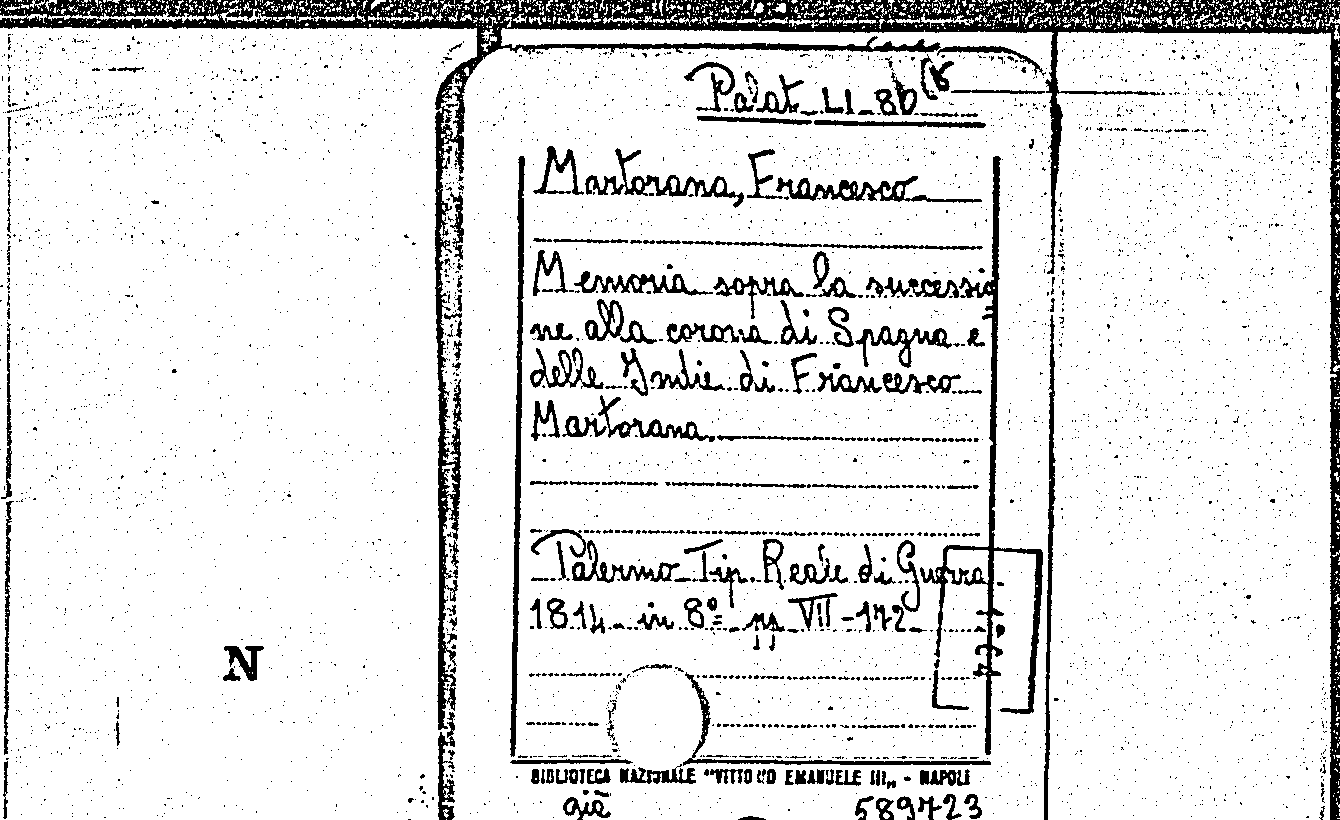 Palat. LI-80 (8
Martorana, Francesco
Memoria sopra la successio
ne alla corona di Spagna e
delle Indie di Francesco
Martorana.
Palermo Tip. Reale di Guerra.
1814 in 8º pp VII-172
N
BIBLIOTECA NAZIONALE "VITTORIO EMANUELE III„ - NAPOLI
già 589723